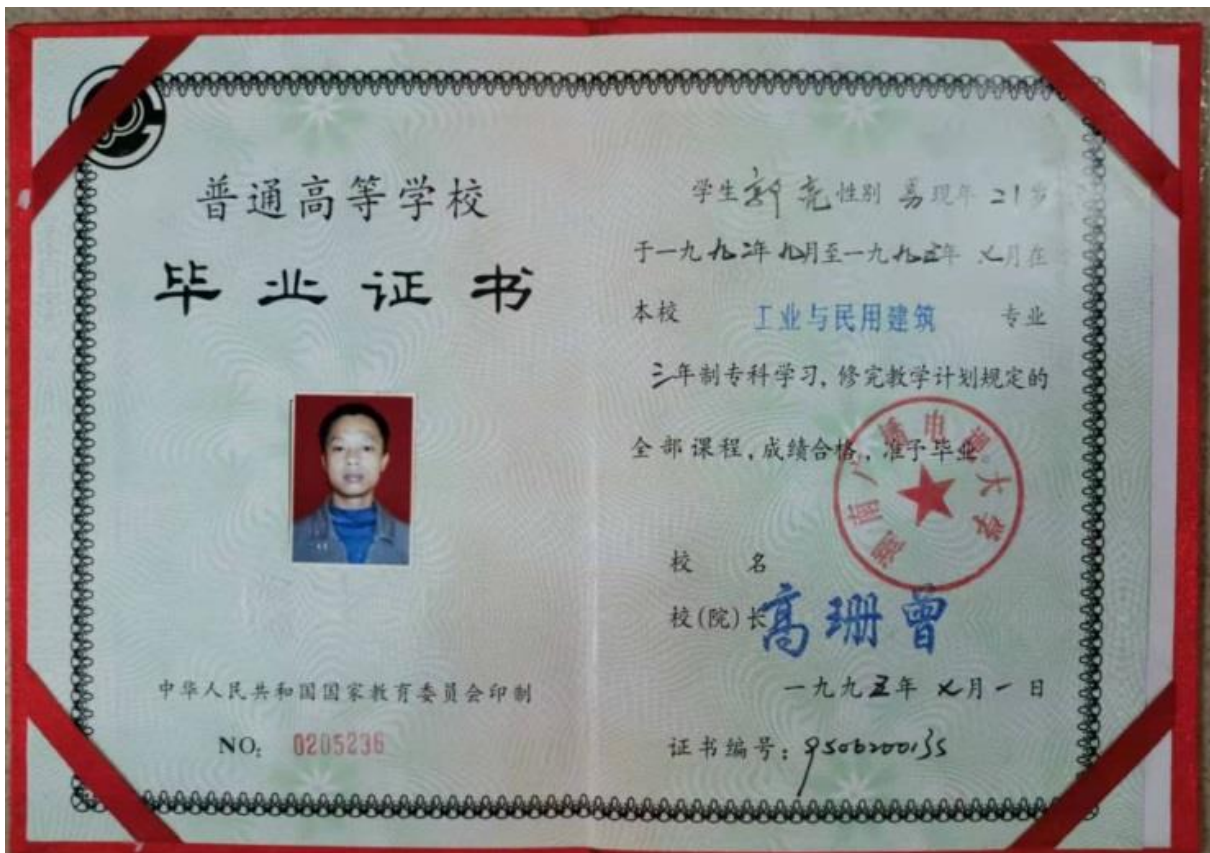 普通高等学校
毕业证书
中华人民共和国国家教育委员会印制
NO: 0205236
学生 亮 性别 男 现年 21 岁
于一九九二年九月至一九九五年 七月在
本校 工业与民用建筑 专业
三年制专科学习, 修完教学计划规定的
全部课程, 成绩合格, 准予毕业。
湖南广播电视大学
校 名
校(院)长 高珊曾
一九九五年 七月一日
证书编号: 9506200135